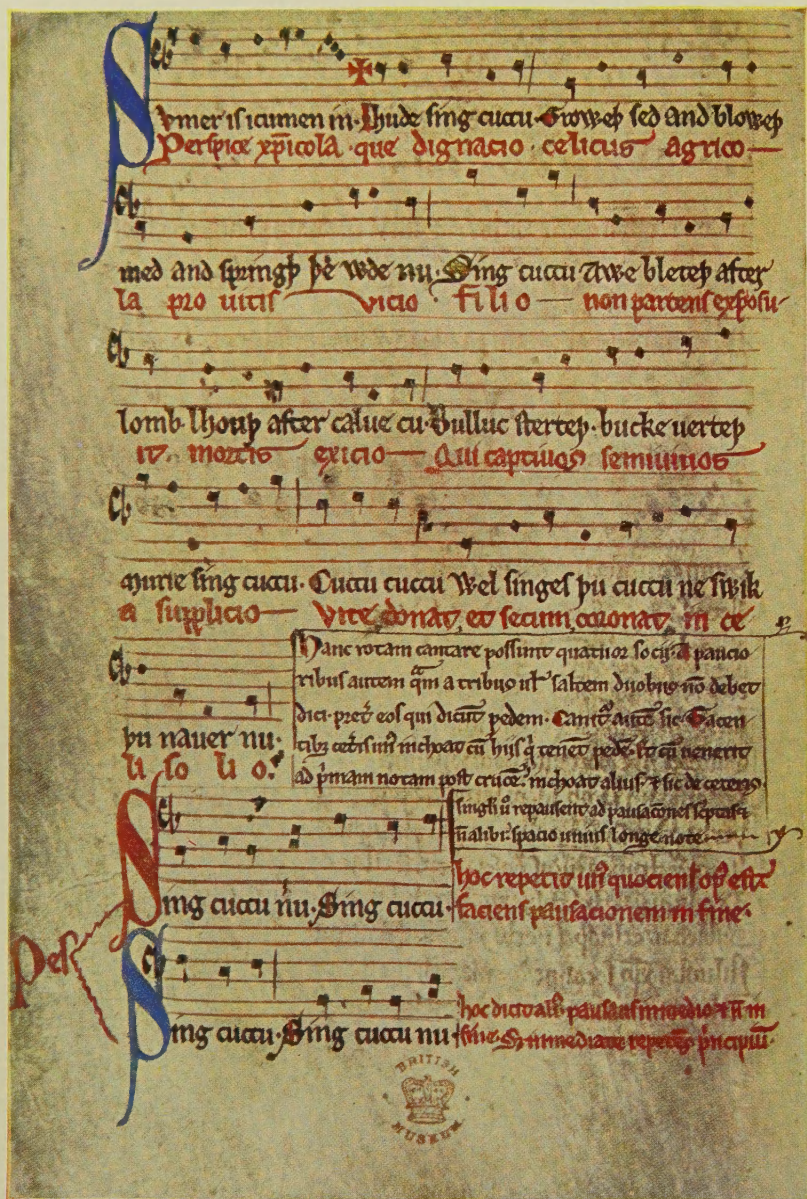 Svmer is icumen in. Lhude sing cuccu. Groweþ sed and bloweþ
Perspice xp̅icola que dignacio celicus agrico
med and springþ þe wde nu. Sing cuccu Awe bleteþ after
la pro uitis vicio filio non parcens exposu
lomb. lhouþ after calue cu. Bulluc sterteþ. bucke uerteþ
it mortis exicio Qui captiuos semiuiuos
murie sing cuccu. Cuccu cuccu Wel singes þu cuccu ne swik
a supplicio Vite donat et secum coronat in ce
þu nauer nu.
li solio.
Hanc rotam cantare possunt quatuor socij. A paucio
ribus autem q̅m a tribus ul' saltem duobus no̅ debet
dici. pret' eos qui dicu̅t pedem. Canit' aute̅ sic. Tacen
tib; cet'is un' inchoat cu̅ hiis q' tenent pede̅. Et cu̅ uenerit
ad p'mam notam post cruce̅. inchoat alius. ⁊ sic de ceteris.
singli u' repausent ad pausac̅ones sc̅ptas ⁊
n̅ alibi. spacio unius longe note
Sing cuccu nu. Sing cuccu.
hoc repetit un' quociens op' est
faciens pausacionem in fine.
Pes
Sing cuccu. Sing cuccu nu
hoc dicit ali'. pausans in medio ⁊ n̅ in
fine. S; inmediate repetens p'ncipiu̅.
BRITISH
MUSEUM